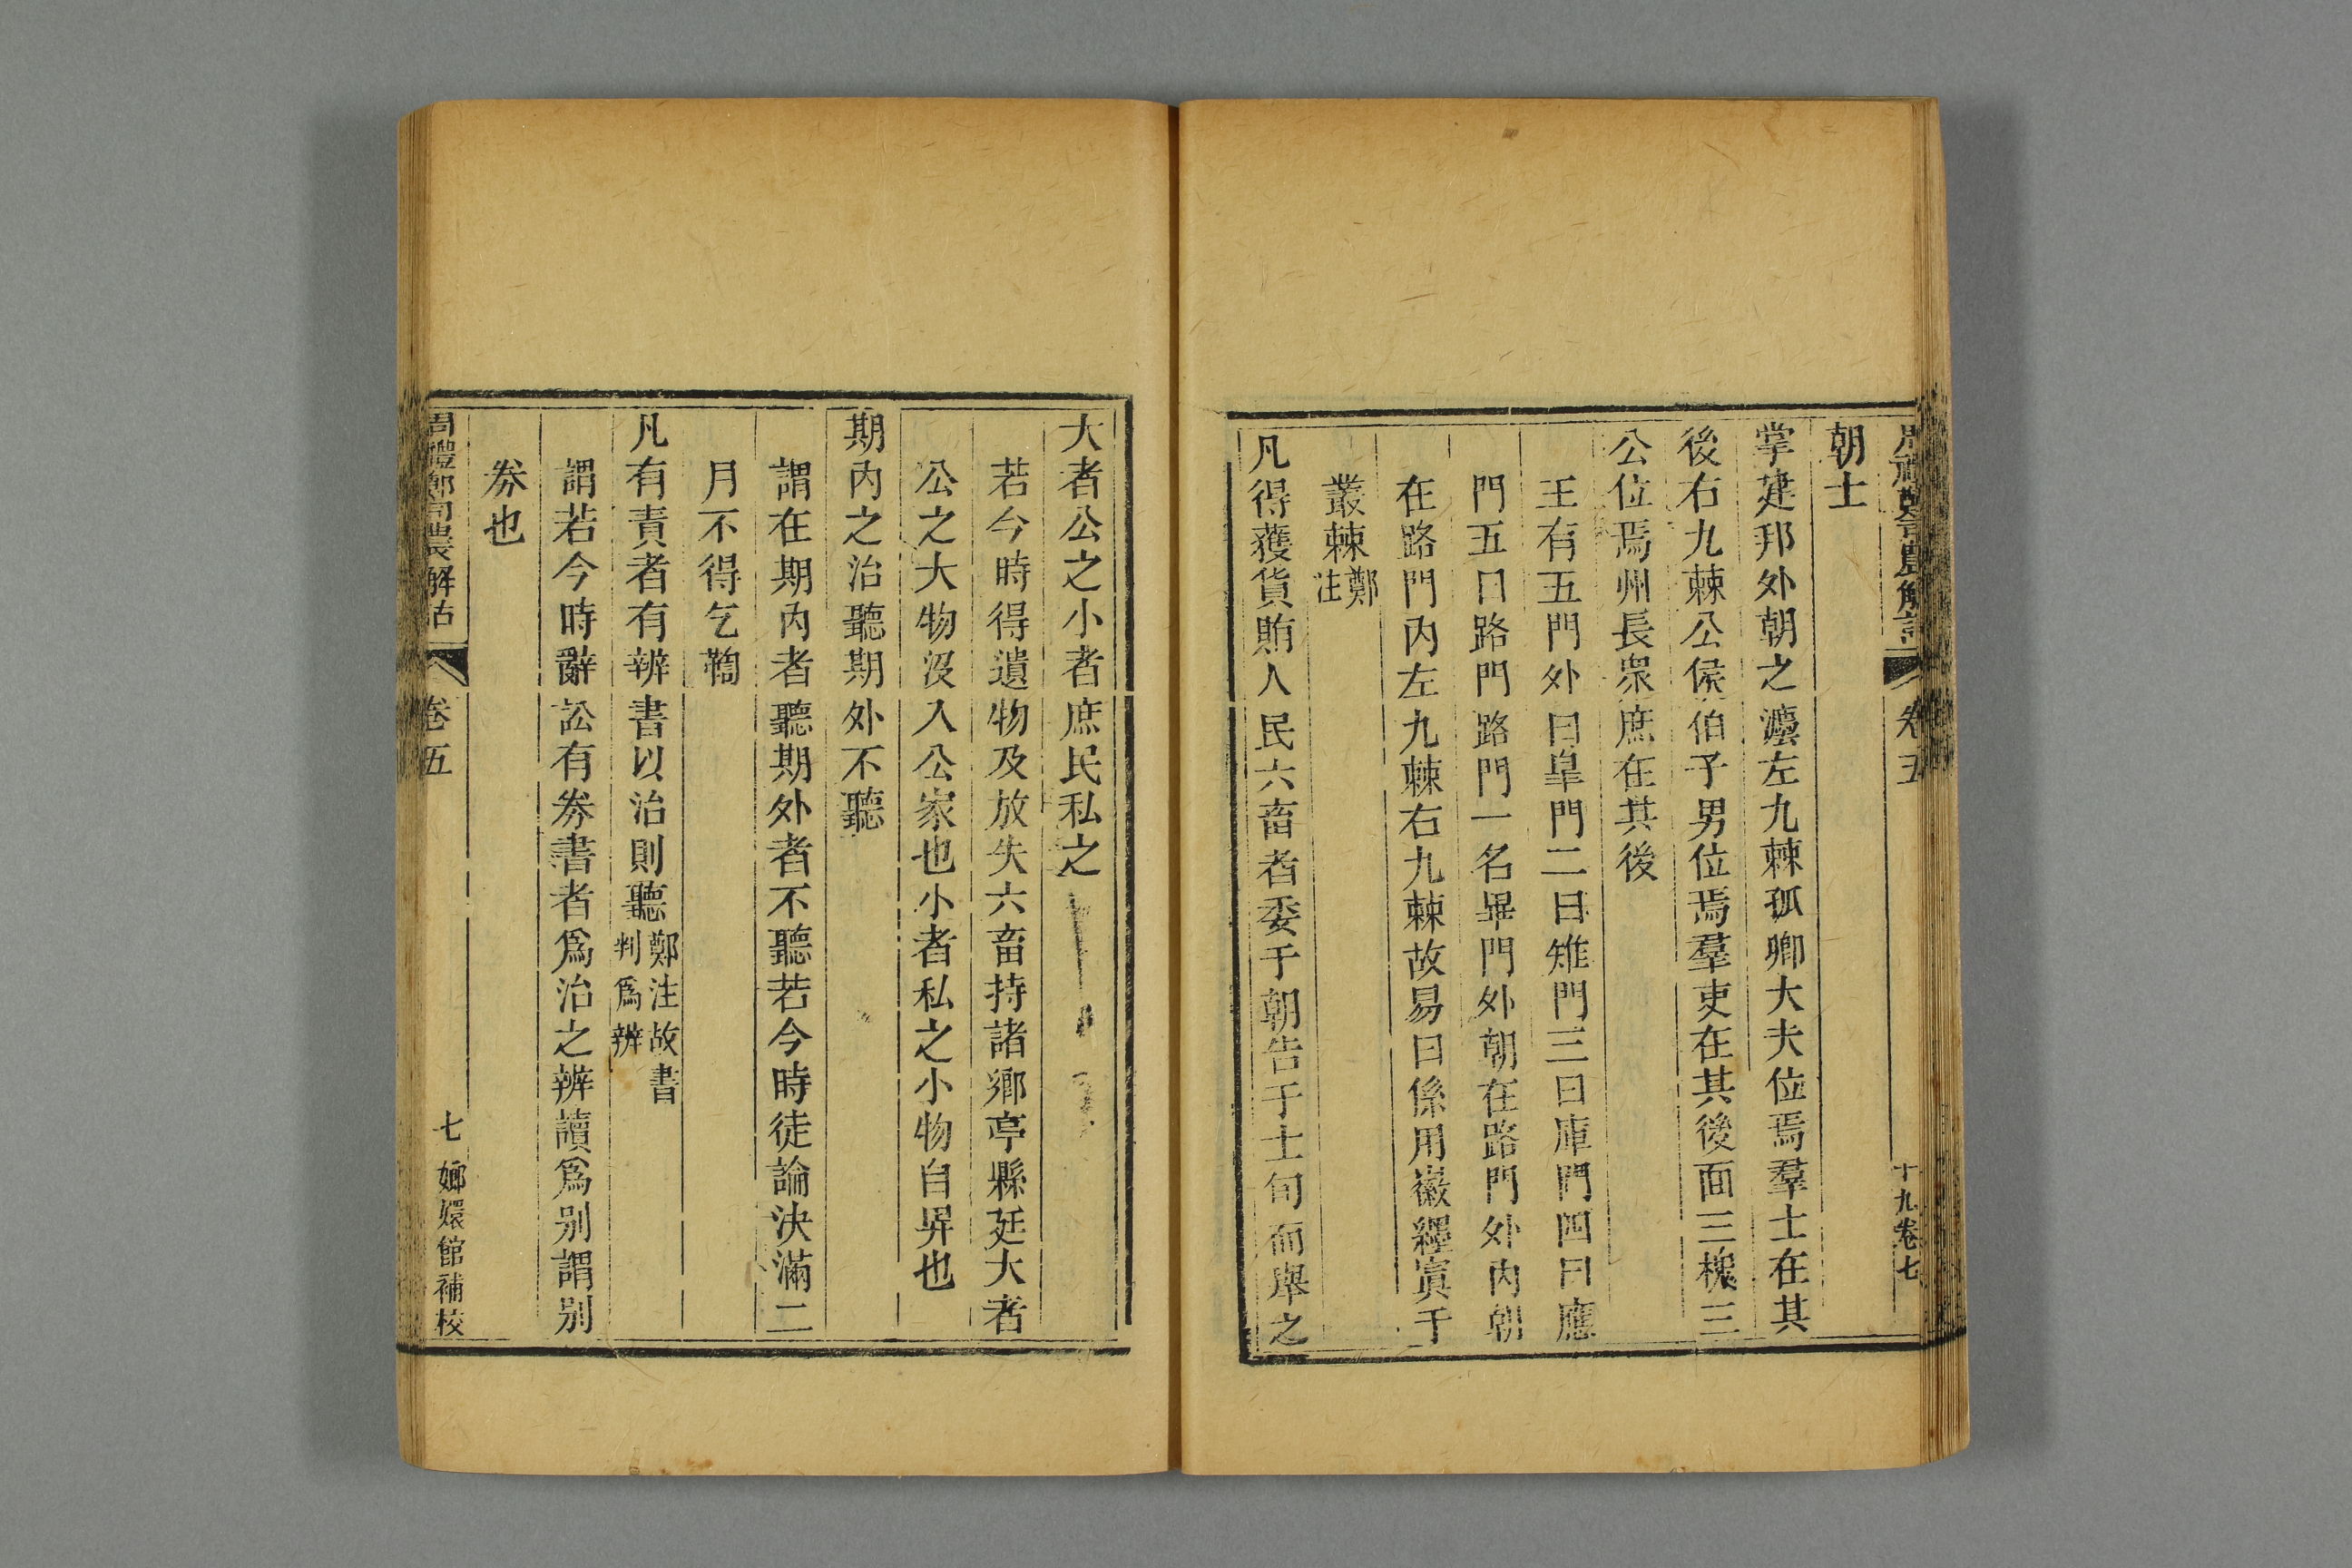 周禮鄭司農解詁
卷五
十九卷七
朝士
掌建邦外朝之灋左九棘孤卿大夫位焉羣士在其
後右九棘公侯伯子男位焉羣吏在其後面三槐三
公位焉州長衆庶在其後
王有五門外曰皐門二曰雉門三曰庫門四曰應
門五曰路門路門一名畢門外朝在路門外內朝
在路門內左九棘右九棘故易曰係用徽纆寘于
叢棘鄭注
凡得獲貨賄人民六畜者委于朝告于士旬而舉之
大者公之小者庶民私之
若今時得遺物及放失六畜持諸鄉亭縣廷大者
公之大物沒入公家也小者私之小物自畀也
期內之治聽期外不聽
謂在期內者聽期外者不聽若今時徒論決滿二
月不得乞鞫
凡有責者有辨書以治則聽鄭注故書判爲辨
謂若今時辭訟有券書者爲治之辨讀爲別謂別
券也
周禮鄭司農解詁
卷五
七
嫏嬛館補校